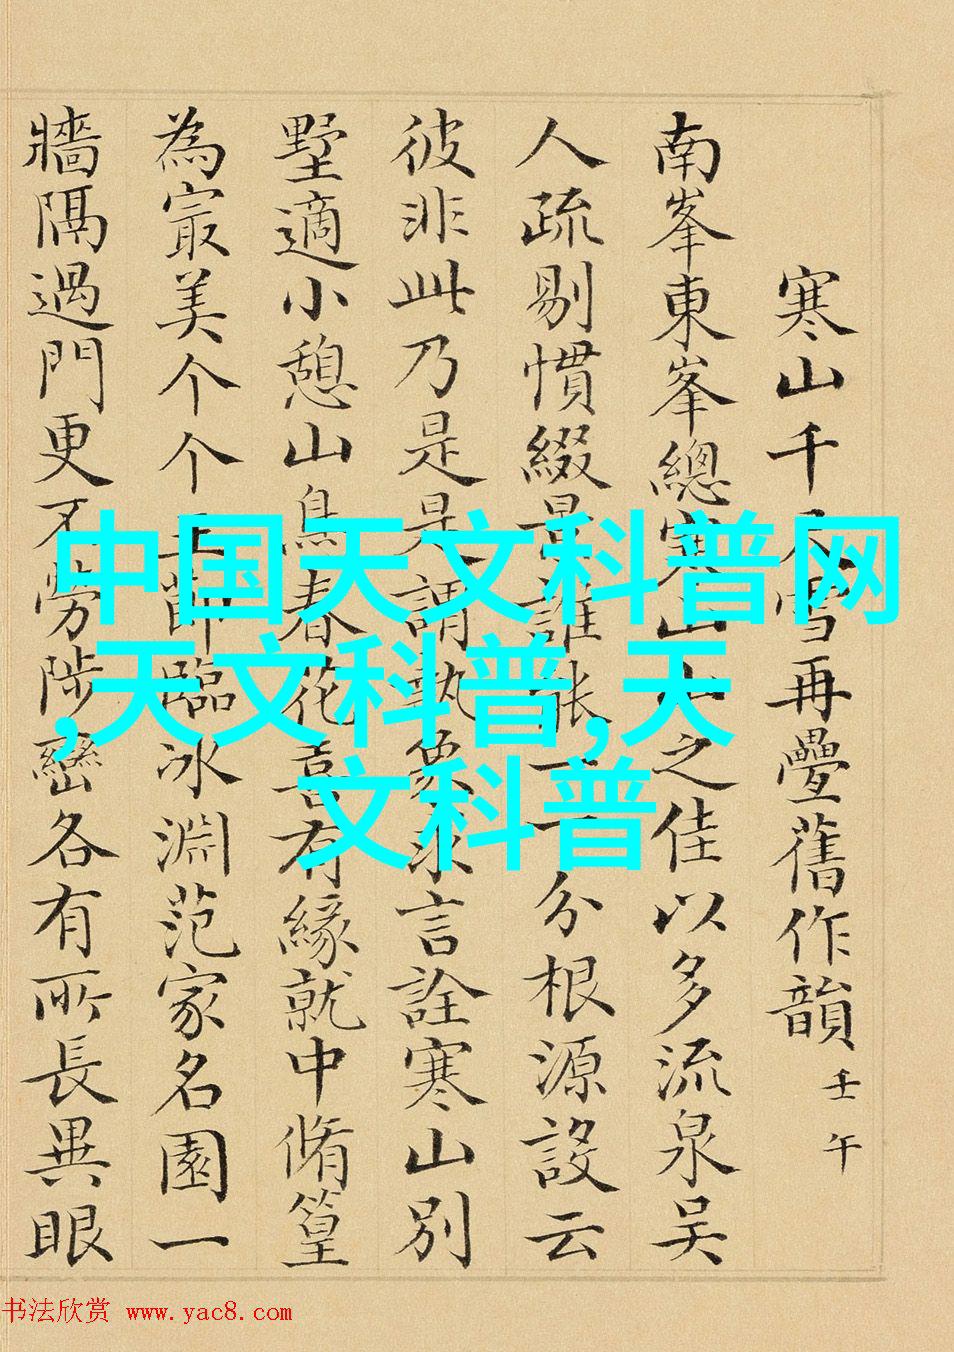 寒山千尺雪再疊舊作韻 壬午
南峯東峯總寒山山之佳以多流泉吴
人疏剔慣綴景誰張一分根源設云
彼非此乃是是謂執象求言詮寒山別
墅適小憩山鳥春花喜有緣就中脩篁
為寂美个个玉節臨冰淵范家名園一
牆隔過門更不勞陟巒各有所長異眼
中国天文科普网
,天文科普,天
文科普
书法欣赏 www.yac8.com